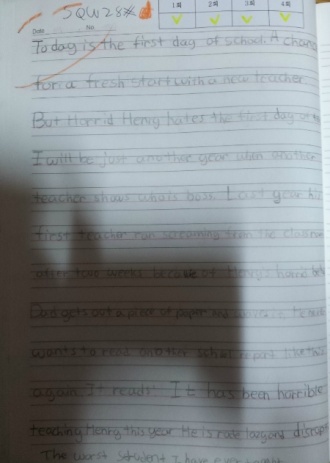 1회 2회 3회 4회
Date No
Today is the first day of school. A chance
for a fresh start with a new teacher
But Horrid Henry hates the first day of
I will be just another year when another
teacher shows who is boss. Last year his
first teacher run screaming from the
after two weeks because of Henry's
Dad gets out a piece of paper and
wants to read another school report like this
again. It reads: It has been horrible
teaching Henry this year. He is rude lazy and
The worst student I have ever